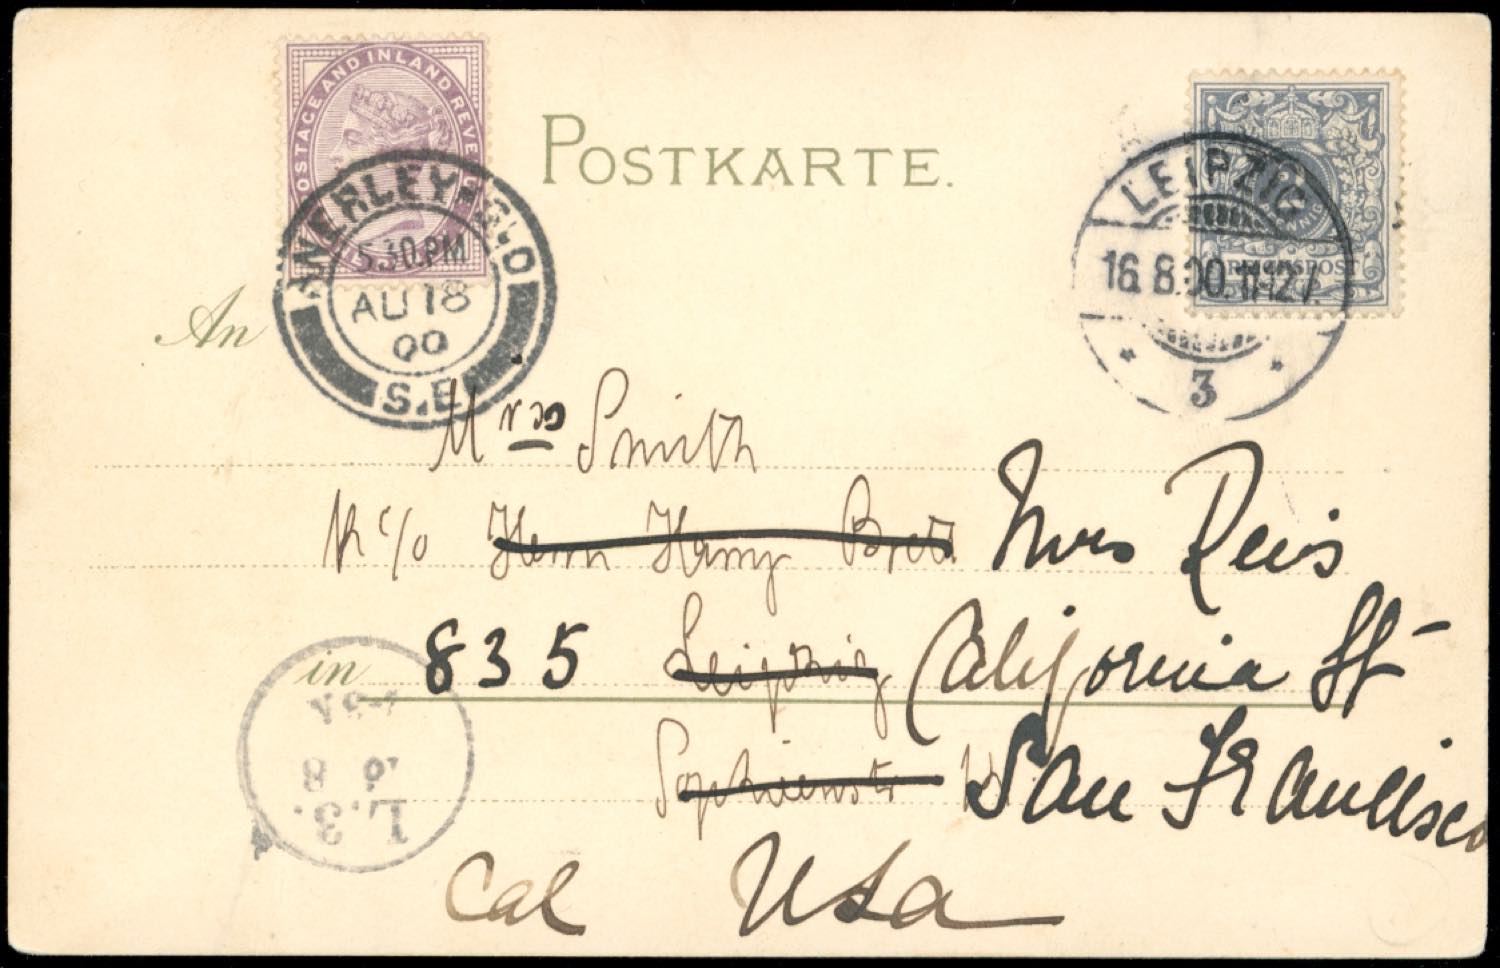 POSTAGE AND INLAND REVENUE
POSTKARTE.
ANERLEY
5.30.PM
AU 18
00
S.E.
LEIPZIG
16.8.00.11-12V.
3
REICHSPOST
An
Mrss Smith
c/o Herrn Harry Mrs Reis
in 835 Leipzig California St
Sophienstr San Francisco
Cal USA
L.3.